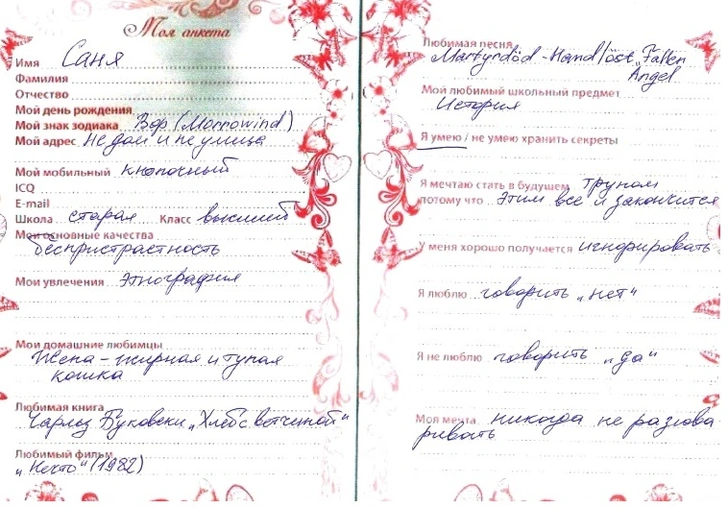 Моя анкета
Имя Саня
Фамилия
Отчество
Мой день рождения
Мой знак зодиака Вор (Morrowind)
Мой адрес не дом и не улица
Мой мобильный кнопочный
ICQ
E-mail
Школа старая Класс высший
Мои основные качества
беспристрастность
Мои увлечения этнография
Мои домашние любимцы
- жирная и тупая
кошка
Любимая книга
Чарльз Буковски "Хлеб с ветчиной"
Любимый фильм
"Нечто" (1982)
Любимая песня
Martyrdöd - Handlöst "Fallen
Angel
Мой любимый школьный предмет
История
Я умею / не умею хранить секреты
Я мечтаю стать в будущем трупом
потому что этим всё и закончится
У меня хорошо получается игнорировать
Я люблю говорить "нет"
Я не люблю говорить "да"
Моя мечта никогда не разгова
ривать